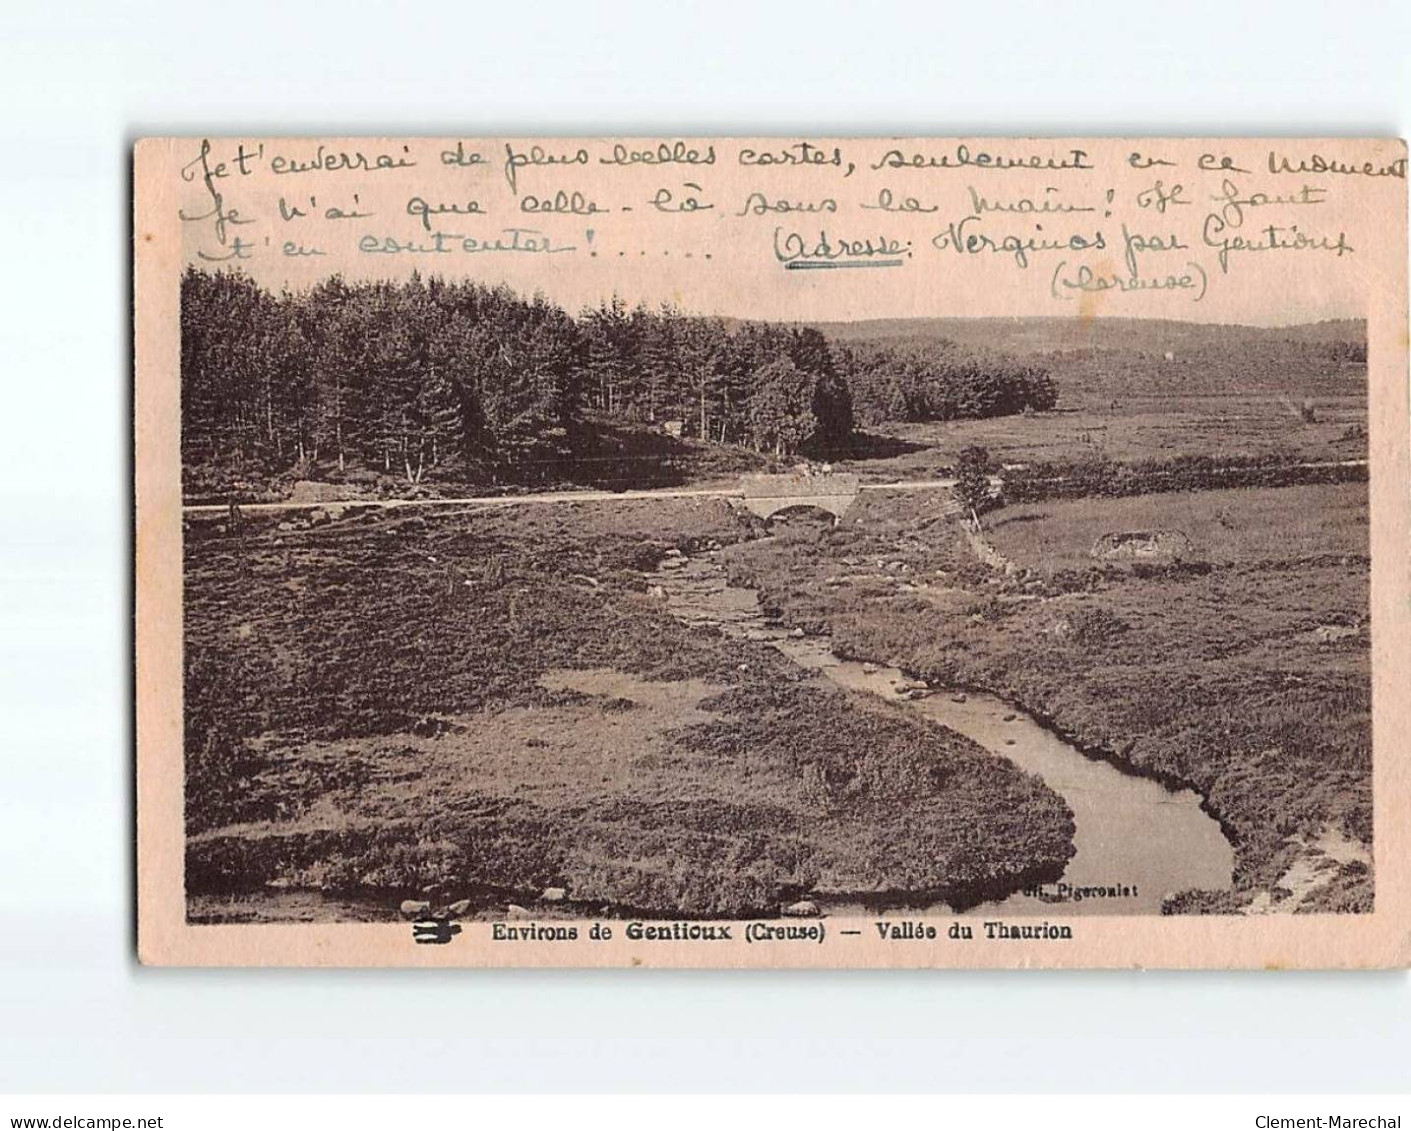 Je t'enverrai de plus belles cartes, seulement en ce moment
Je n'ai que celle-là sous la main! Il faut
t'en contenter!...... Adresse: Verginas par Gentioux
(Creuse)
Pigeroulet
Environs de Gentioux (Creuse) — Vallée du Thaurion
www.delcampe.net
Clement-Marechal